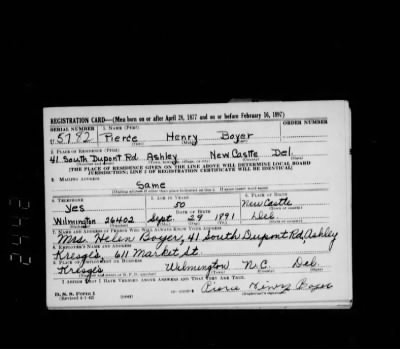 REGISTRATION CARD—(Men born on or after April 28, 1877 and on or before February 16, 1897)
SERIAL NUMBER 1. NAME (Print) ORDER NUMBER
U 5782 Pierce Henry Boyer
2. PLACE OF RESIDENCE (Print)
41 South Dupont Rd Ashley New Castle Del.
[THE PLACE OF RESIDENCE GIVEN ON THE LINE ABOVE WILL DETERMINE LOCAL BOARD
JURISDICTION; LINE 2 OF REGISTRATION CERTIFICATE WILL BE IDENTICAL]
3. MAILING ADDRESS
Same
4. TELEPHONE 5. AGE IN YEARS 6. PLACE OF BIRTH
Yes 50 New Castle
DATE OF BIRTH
Wilmington 26402 Sept. 29 1891 Del.
7. NAME AND ADDRESS OF PERSON WHO WILL ALWAYS KNOW YOUR ADDRESS
Mrs. Helen Boyer, 41 South Dupont Rd, Ashley
8. EMPLOYER'S NAME AND ADDRESS
Kresge's, 611 Market St.
9. PLACE OF EMPLOYMENT OR BUSINESS
Kresge's Wilmington N.C. Del.
I AFFIRM THAT I HAVE VERIFIED ABOVE ANSWERS AND THAT THEY ARE TRUE.
D. S. S. Form 1
Pierce Henry Boyer